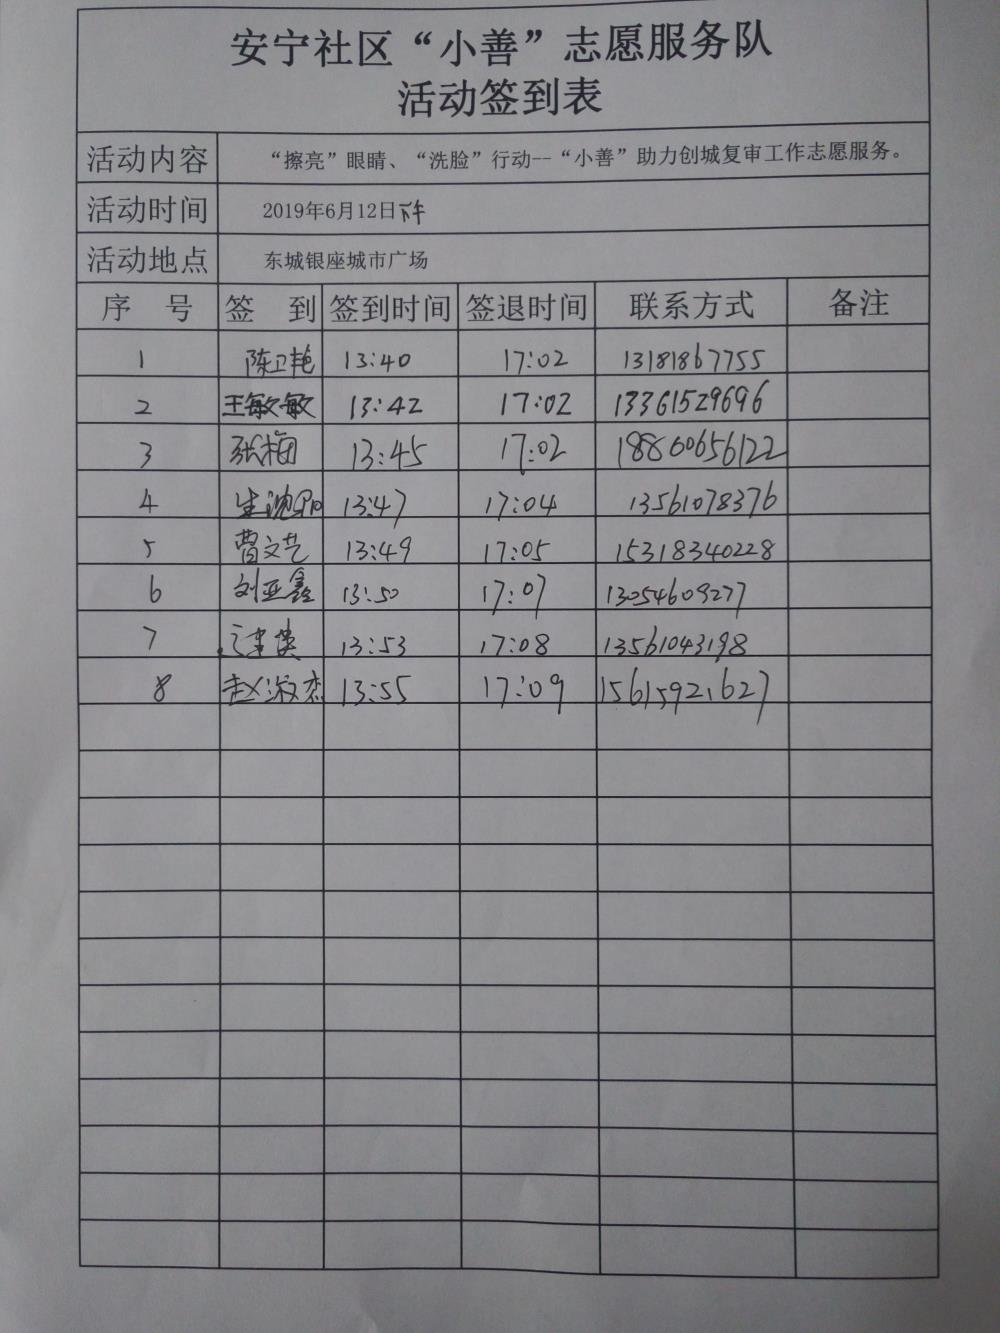 安宁社区“小善”志愿服务队
活动签到表
活动内容 “擦亮”眼睛、“洗脸”行动--“小善”助力创城复审工作志愿服务。
活动时间 2019年6月12日下午
活动地点 东城银座城市广场
序 号 签 到 签到时间 签退时间 联系方式 备注
1 陈卫艳 13:40 17:02 13181867755
2 王敏敏 13:42 17:02 13361529696
3 张梅 13:45 17:02 18860656122
4 13:47 17:04 13561078376
5 曹文艺 13:49 17:05 15318340228
6 刘亚鑫 13:50 17:07 13054609277
7 13:53 17:08 13561043198
8 赵淑杰 13:55 17:09 15615921627